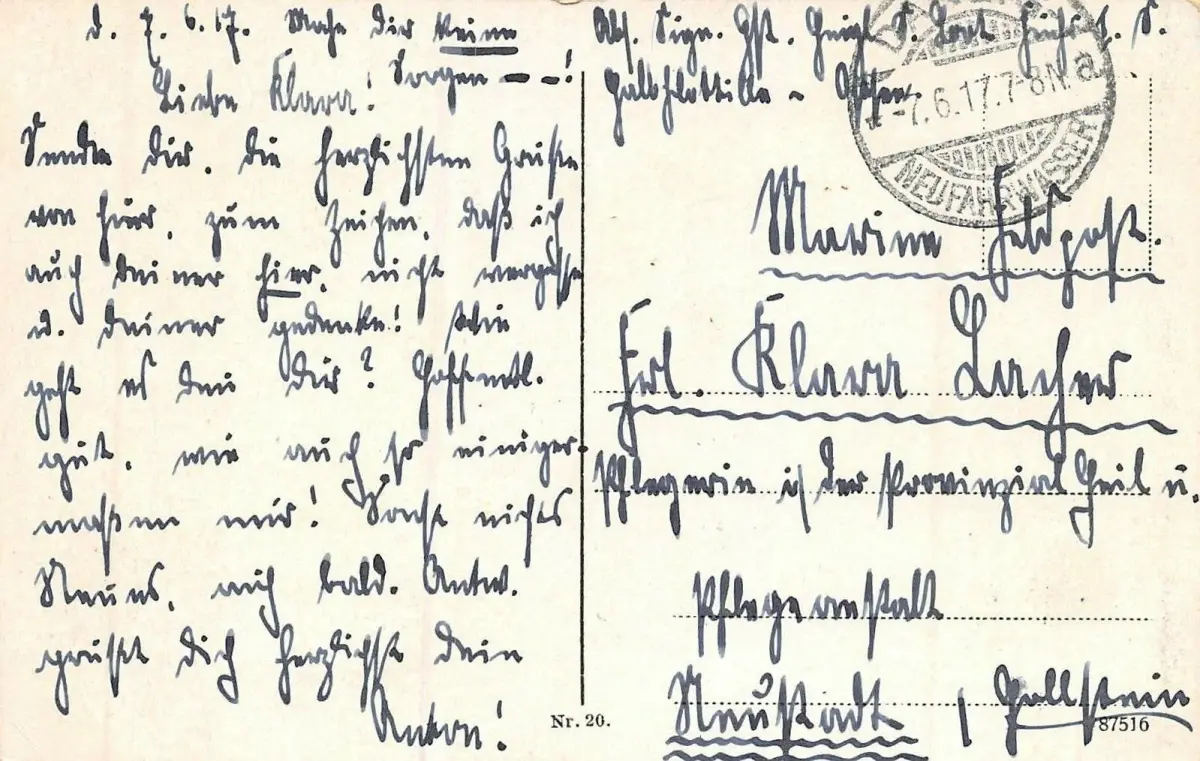 d. 7. 6. 17. Mache dir keine
Sorgen — —!
Liebe Klara!
Sende Dir, die herzlichsten Grüße
von hier, zum Zeichen, daß ich
auch deiner hier, nicht vergesse
u. deiner gedenke! Wie
geht es den Dir? Hoffentl.
gut, wie auch so einiger-
maßen mir! Sonst nichts
Neues, auf bald. Antw.
grüßt dich herzlichst dein
Anton!
Abs. Sign. Gst. S. S.
Halbflottille -
-7.6.17.7-8N. a
NEUFAHRWASSER
Marine Feldpost.
Frl. Klara Lacher
Pflegerin i/ der Provinzial Heil u.
Pflegeanstalt
Neustadt / Hollstein
Nr. 20.
87516